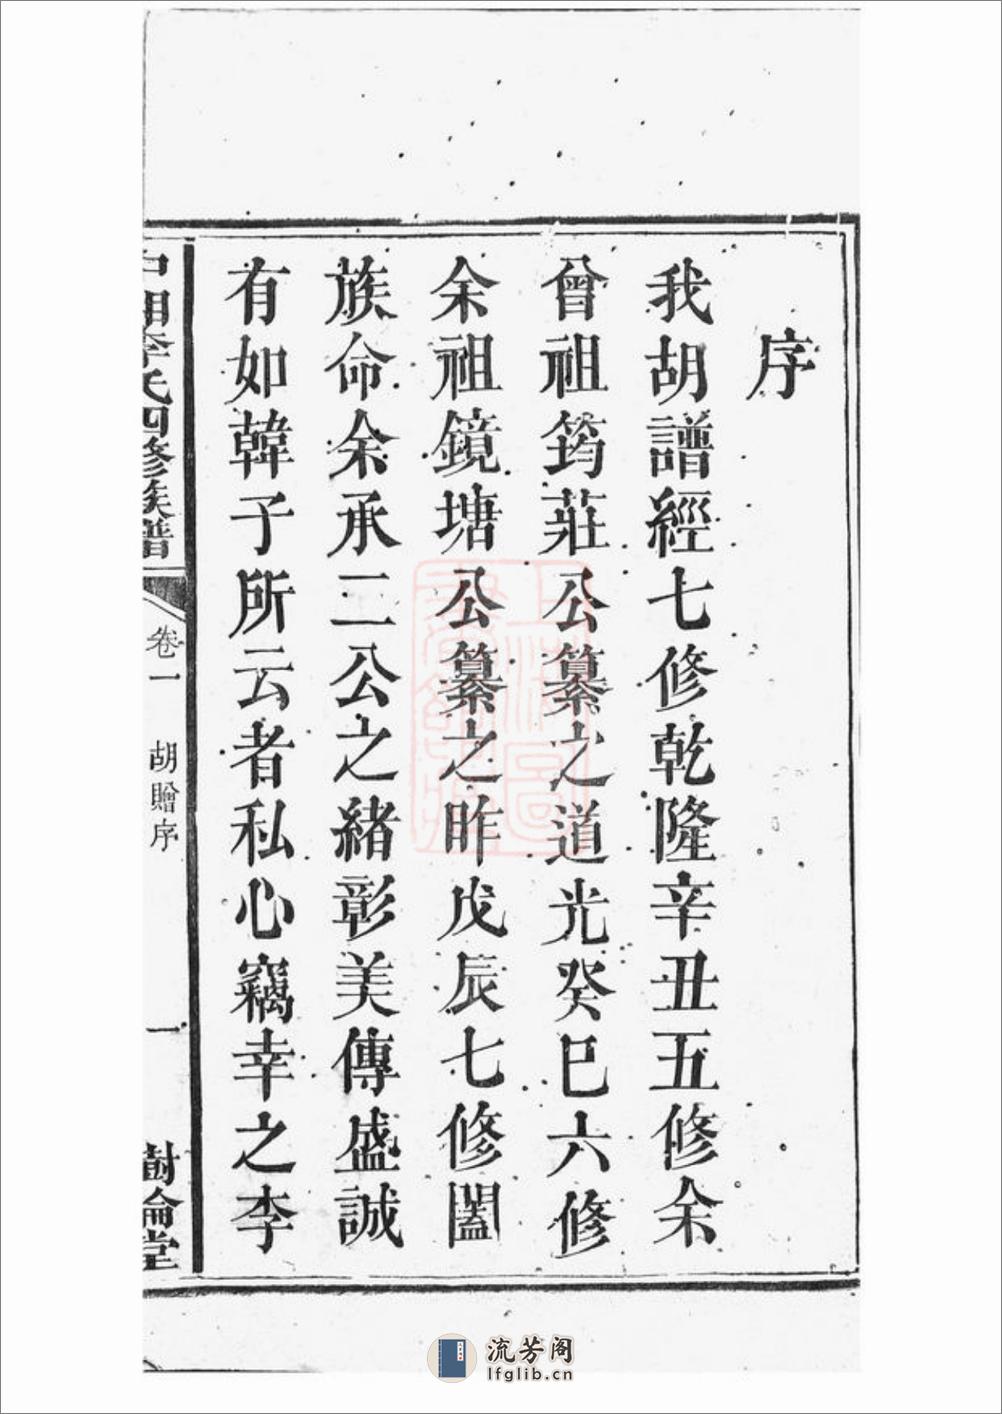 序
我胡譜經七修乾隆辛丑五修余
曾祖筠莊公纂之道光癸巳六修
余祖鏡塘公纂之昨戊辰七修闔
族命余承二公之緒彰美傳盛誠
有如韓子所云者私心竊幸之李
中湘李氏四修族譜
卷一
胡贈序
一
樹倫堂
流芳阁
lfglib.cn